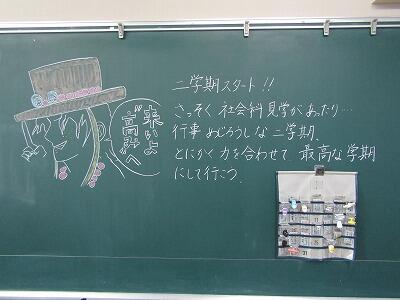 二学期スタート!!
さっそく 社会科見学があったり…
行事 めじろうしな 二学期.
とにかく 力を合わせて 最高な学期
にして行こう.
"来いよ
高みへ"
31